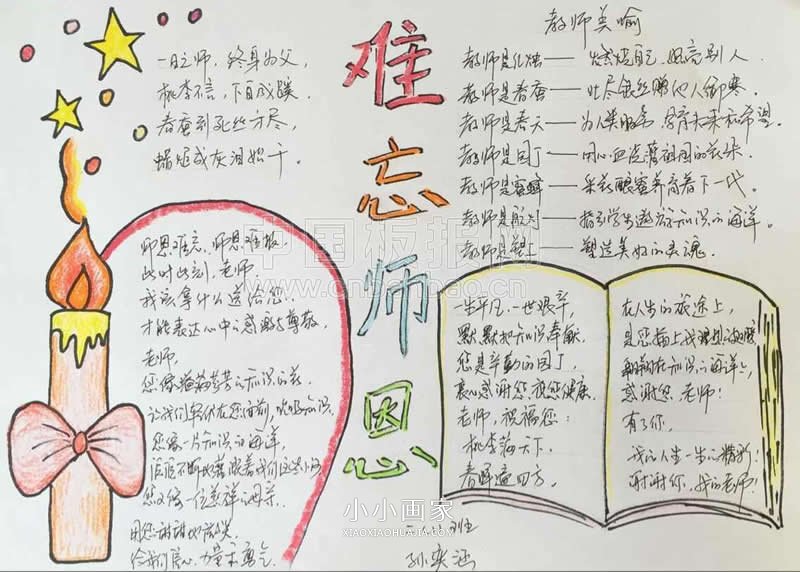 难忘师恩
一日之师，终身为父，
桃李不言，下自成蹊
春蚕到死丝方尽，
蜡炬成灰泪始干。
教师美喻
教师是红烛——燃烧自己，照亮别人
教师是春蚕——吐尽银丝赠他人御寒。
教师是春天——为人类服务，孕育未来和希望。
教师是园丁——用心血浇灌祖国的花朵。
教师是蜜蜂——采花酿蜜养育着下一代。
教师是航舟——指引学生遨游知识的海洋。
教师是塑工——塑造美好的灵魂。
师恩难忘，师恩难报，
此时此刻，老师，
我该拿什么送给您，
才能表达心中的感激与尊敬，
老师，
您像知识的花，
让我们在您面前，知识，
您像一片知识的海洋，
您又像一位慈祥的母亲，
给我们信心、力量和勇气
一生平凡，一世艰辛，
默默把知识奉献，
您是辛勤的园丁，
衷心感谢您，祝您健康。
老师，祝福您：
桃李满天下，
春晖遍四方。
在人生的旅途上，
是您插上我理想的翅膀
翱翔在知识的海洋，
感谢您，老师！
有了您，
我的人生一生的精彩！
谢谢你，我的老师！
班
孙奕涵
中国板报网
小小画家
XIAOXIAOHUAJIA.COM